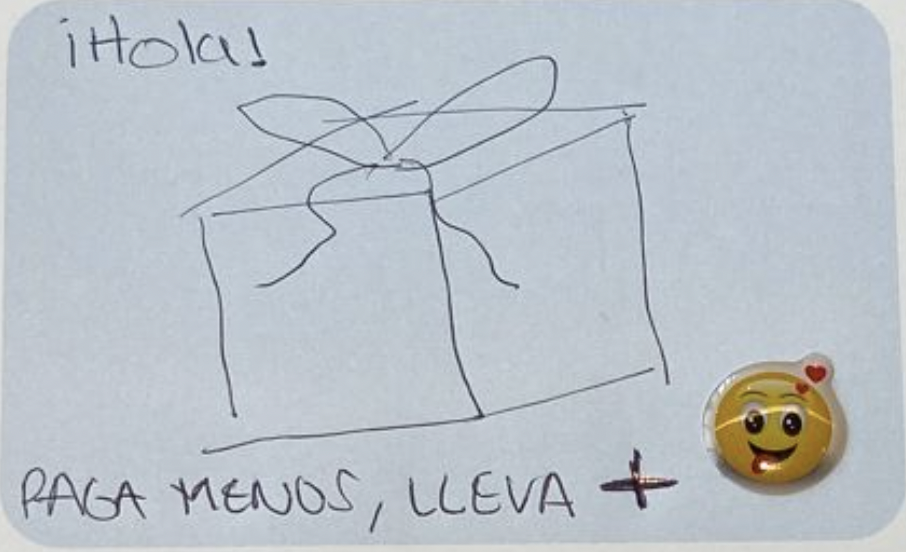 ¡Hola!
PAGA MENOS, LLEVA +